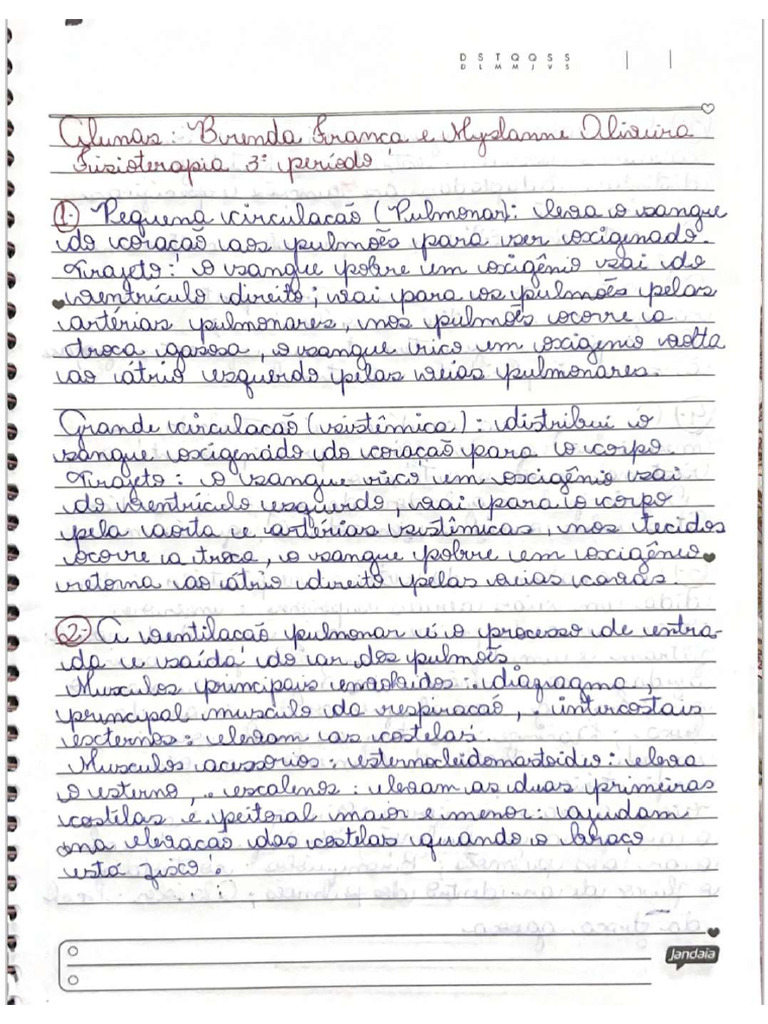 D S T Q Q S S
D L M M J V S
Alunas: Brenda França e Myslanne Oliveira
Fisioterapia 3º período
1. Pequena circulacão (Pulmonar): leva o sangue
do coração aos pulmões para ser oxigenado.
Trajeto: o sangue pobre em oxigênio sai do
ventrículo direito; vai para os pulmões pelas
artérias pulmonares, nos pulmões ocorre a
troca gasosa, o sangue rico em oxigenio volta
ao átrio esquerdo pelas veias pulmonares.
Grande circulacão (sistêmica): distribui o
sangue oxigenado do coração para o corpo.
Trajeto: o sangue rico em oxigênio sai
do ventrículo esquerdo, vai para o corpo
pela aorta e artérias sistîmicas, nos tecidos
ocorre a troca, o sangue pobre em oxigênio
retorna ao átrio direito pelas veias cavas.
2. A ventilacão pulmonar é o processo de entra-
da e saída do ar dos pulmões.
Musculos principais envolvidos: diafragma,
principal musculo da respiracão, intercostais
externos: elevam as costelas.
Musculos acessórios: esternocleidomastoideo: eleva
o esterno, escalenos: elevam as duas primeiras
costelas e peitoral maior e menor: ajudam
na elevacão das costelas quando o braço
está fixo.
Jandaia